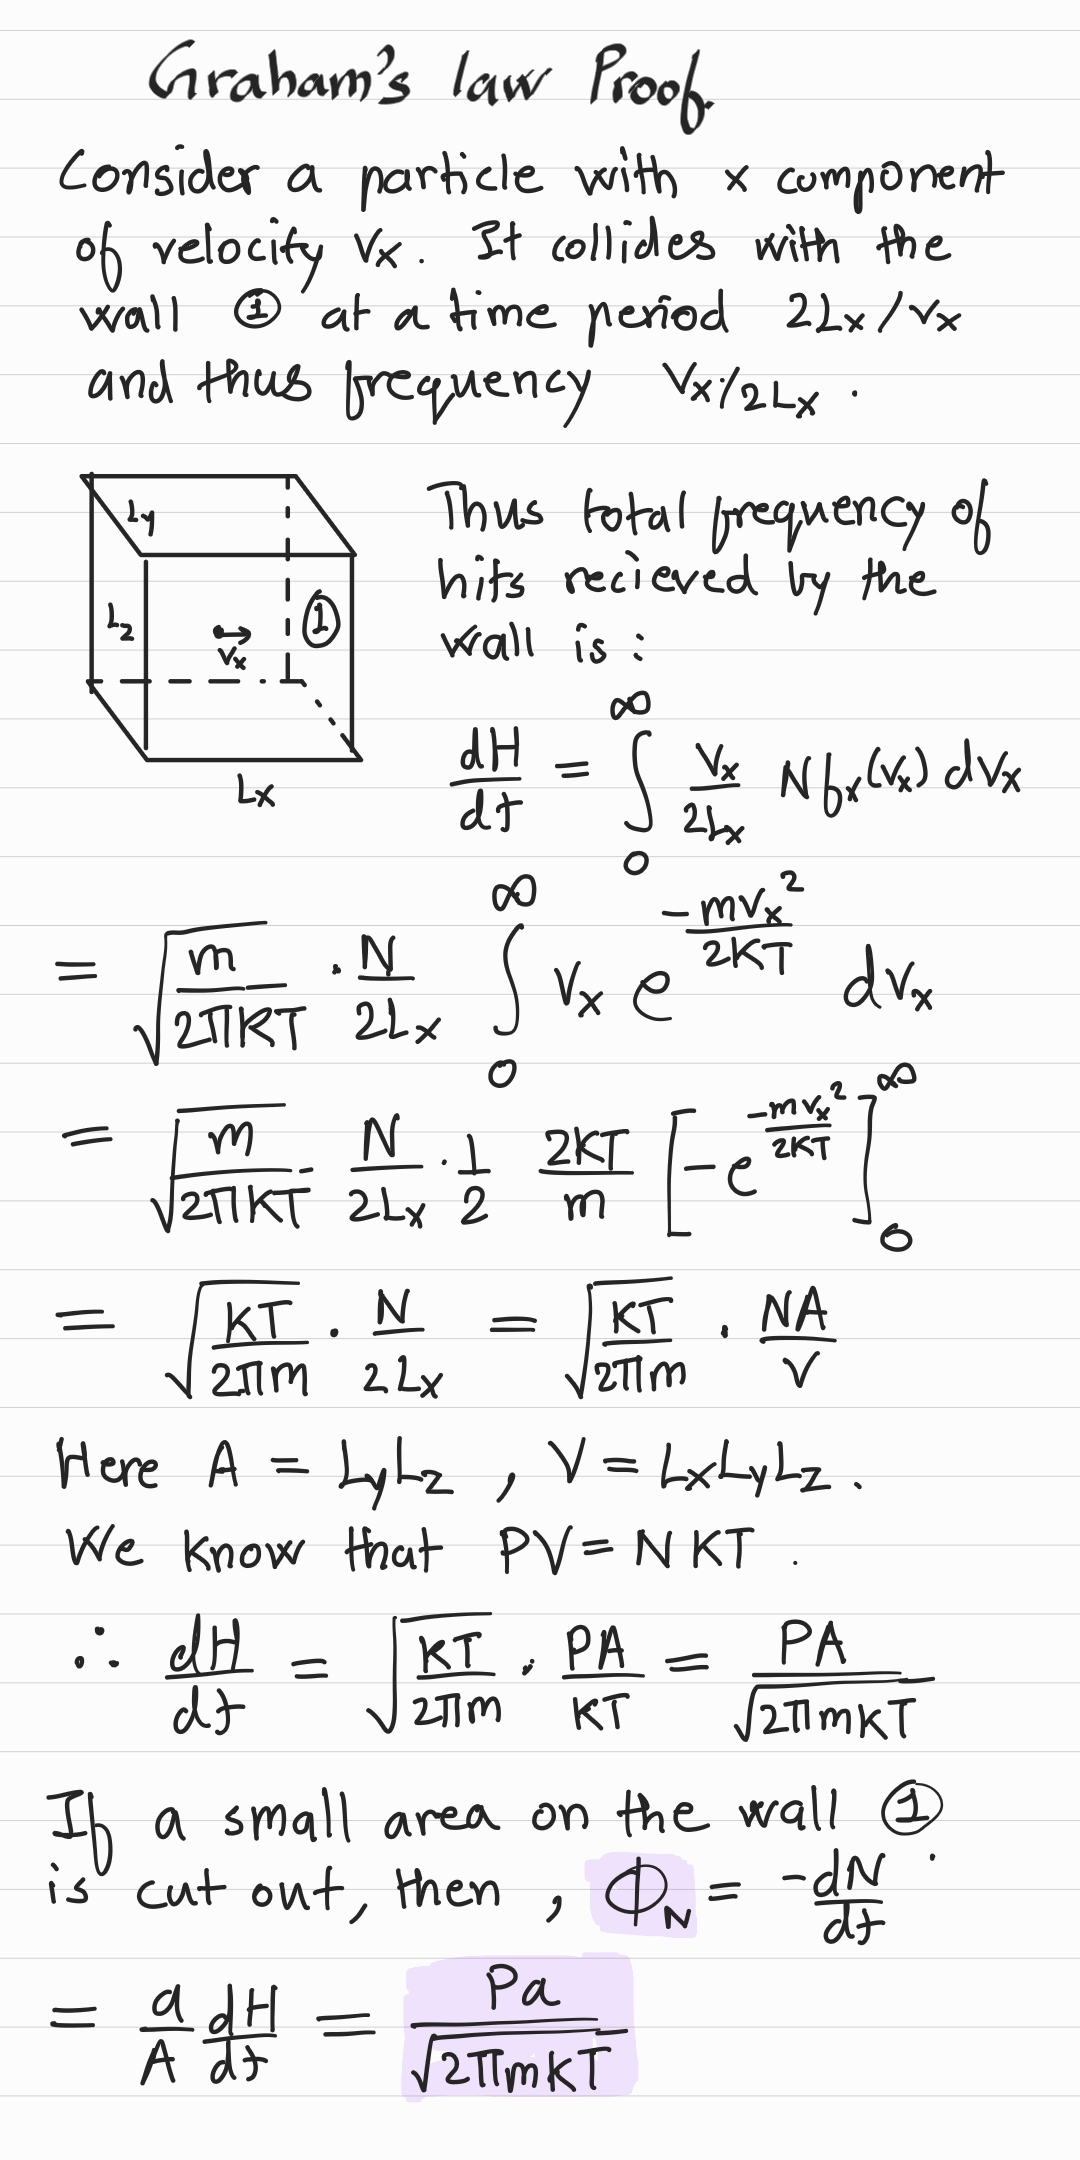 Graham's law Proof.
Consider a particle with x component
of velocity Vx. It collides with the
wall ① at a time period 2Lx/vx
and thus frequency Vx/2Lx.
Ly
Lz
vx
①
Lx
Thus total frequency of
hits recieved by the
wall is :
dH/dt = ∫₀^∞ Vx/2Lx N fx(vx) dVx
= √(m/2πKT) · N/2Lx ∫₀^∞ Vx e^(-mvx²/2KT) dVx
= √(m/2πKT) N/2Lx · 1/2 2KT/m [-e^(-mvx²/2KT)]₀^∞
= √(KT/2πm) · N/2Lx = √(KT/2πm) · NA/V
Here A = LyLz , V = LxLyLz .
We know that PV = NKT .
∴ dH/dt = √(KT/2πm) · PA/KT = PA/√(2πmKT)
If a small area on the wall ①
is cut out, then , ΦN = -dN/dt
= a/A dH/dt = Pa/√(2πmKT)